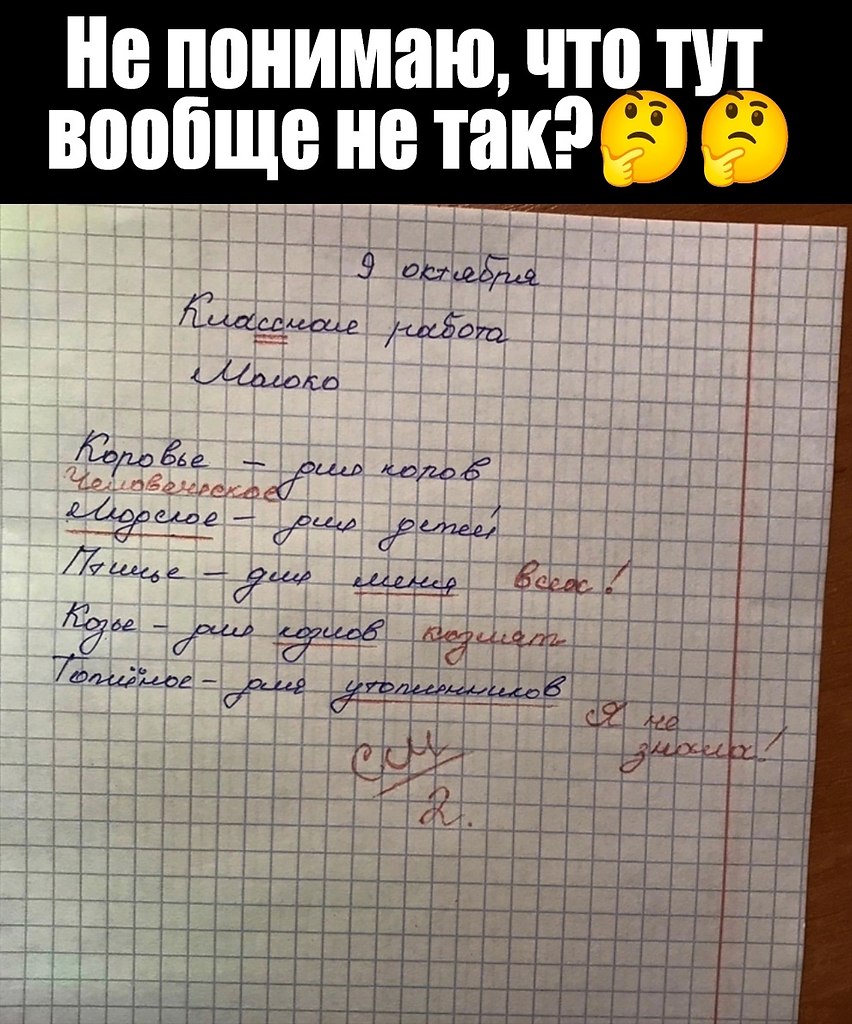 Не понимаю, что тут
вообще не так?🤔🤔
9 октября
Классная работа
Молоко
Коровье – для коров
Человеческое
Людское – для детей
Птичье – для меня всех!
Козье – для козлов козлят
Топлёное – для утопленников
Я не
знала!
См/2.